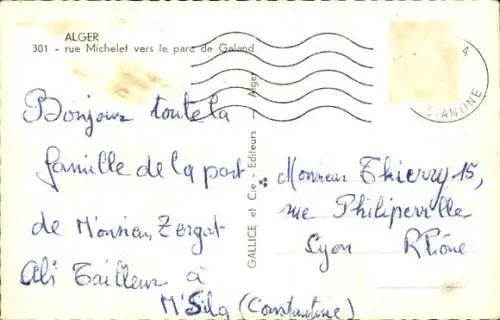 ALGER
301 - rue Michelet vers le parc de Galand
4
ANTINE
Bonjour toute la
famille de la part
de Monsieur Zergat
Ali Tailleur à
M'Sila (Constantine)
GALLICE et Cie - Editeurs - Alger
Monsieur Thierry 15,
rue Philipeville
Lyon Rhône